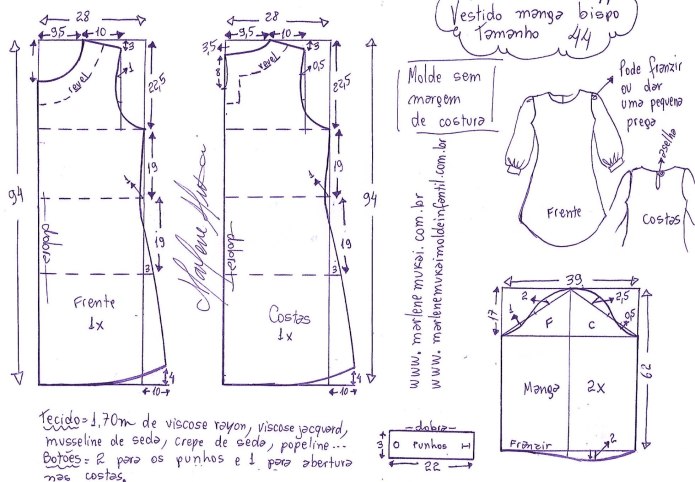 Vestido manga bispo
Tamanho 44
28
9,5
10
3
1
revel
22,5
19
1
19
3
94
dobra
Frente
1x
4
10
28
9,5
10
3,5
8
3
0,5
revel
22,5
19
1
19
3
94
dobra
Costas
1x
4
10
Marlene Mukai
Molde sem
margem
de costura
www.marlenemukai.com.br
www.marlenemukaimoldeinfantil.com.br
Pode franzir
ou dar
uma pequena
prega
aselha
Frente
Costas
39
17
2
1
2,5
0,5
F
C
62
Manga
2x
Franzir
2
dobra
3
Punhos
22
Tecido = 1,70m de viscose rayon, viscose jacquard,
musseline de seda, crepe de seda, popeline...
Botões = 2 para os punhos e 1 para abertura
nas costas.